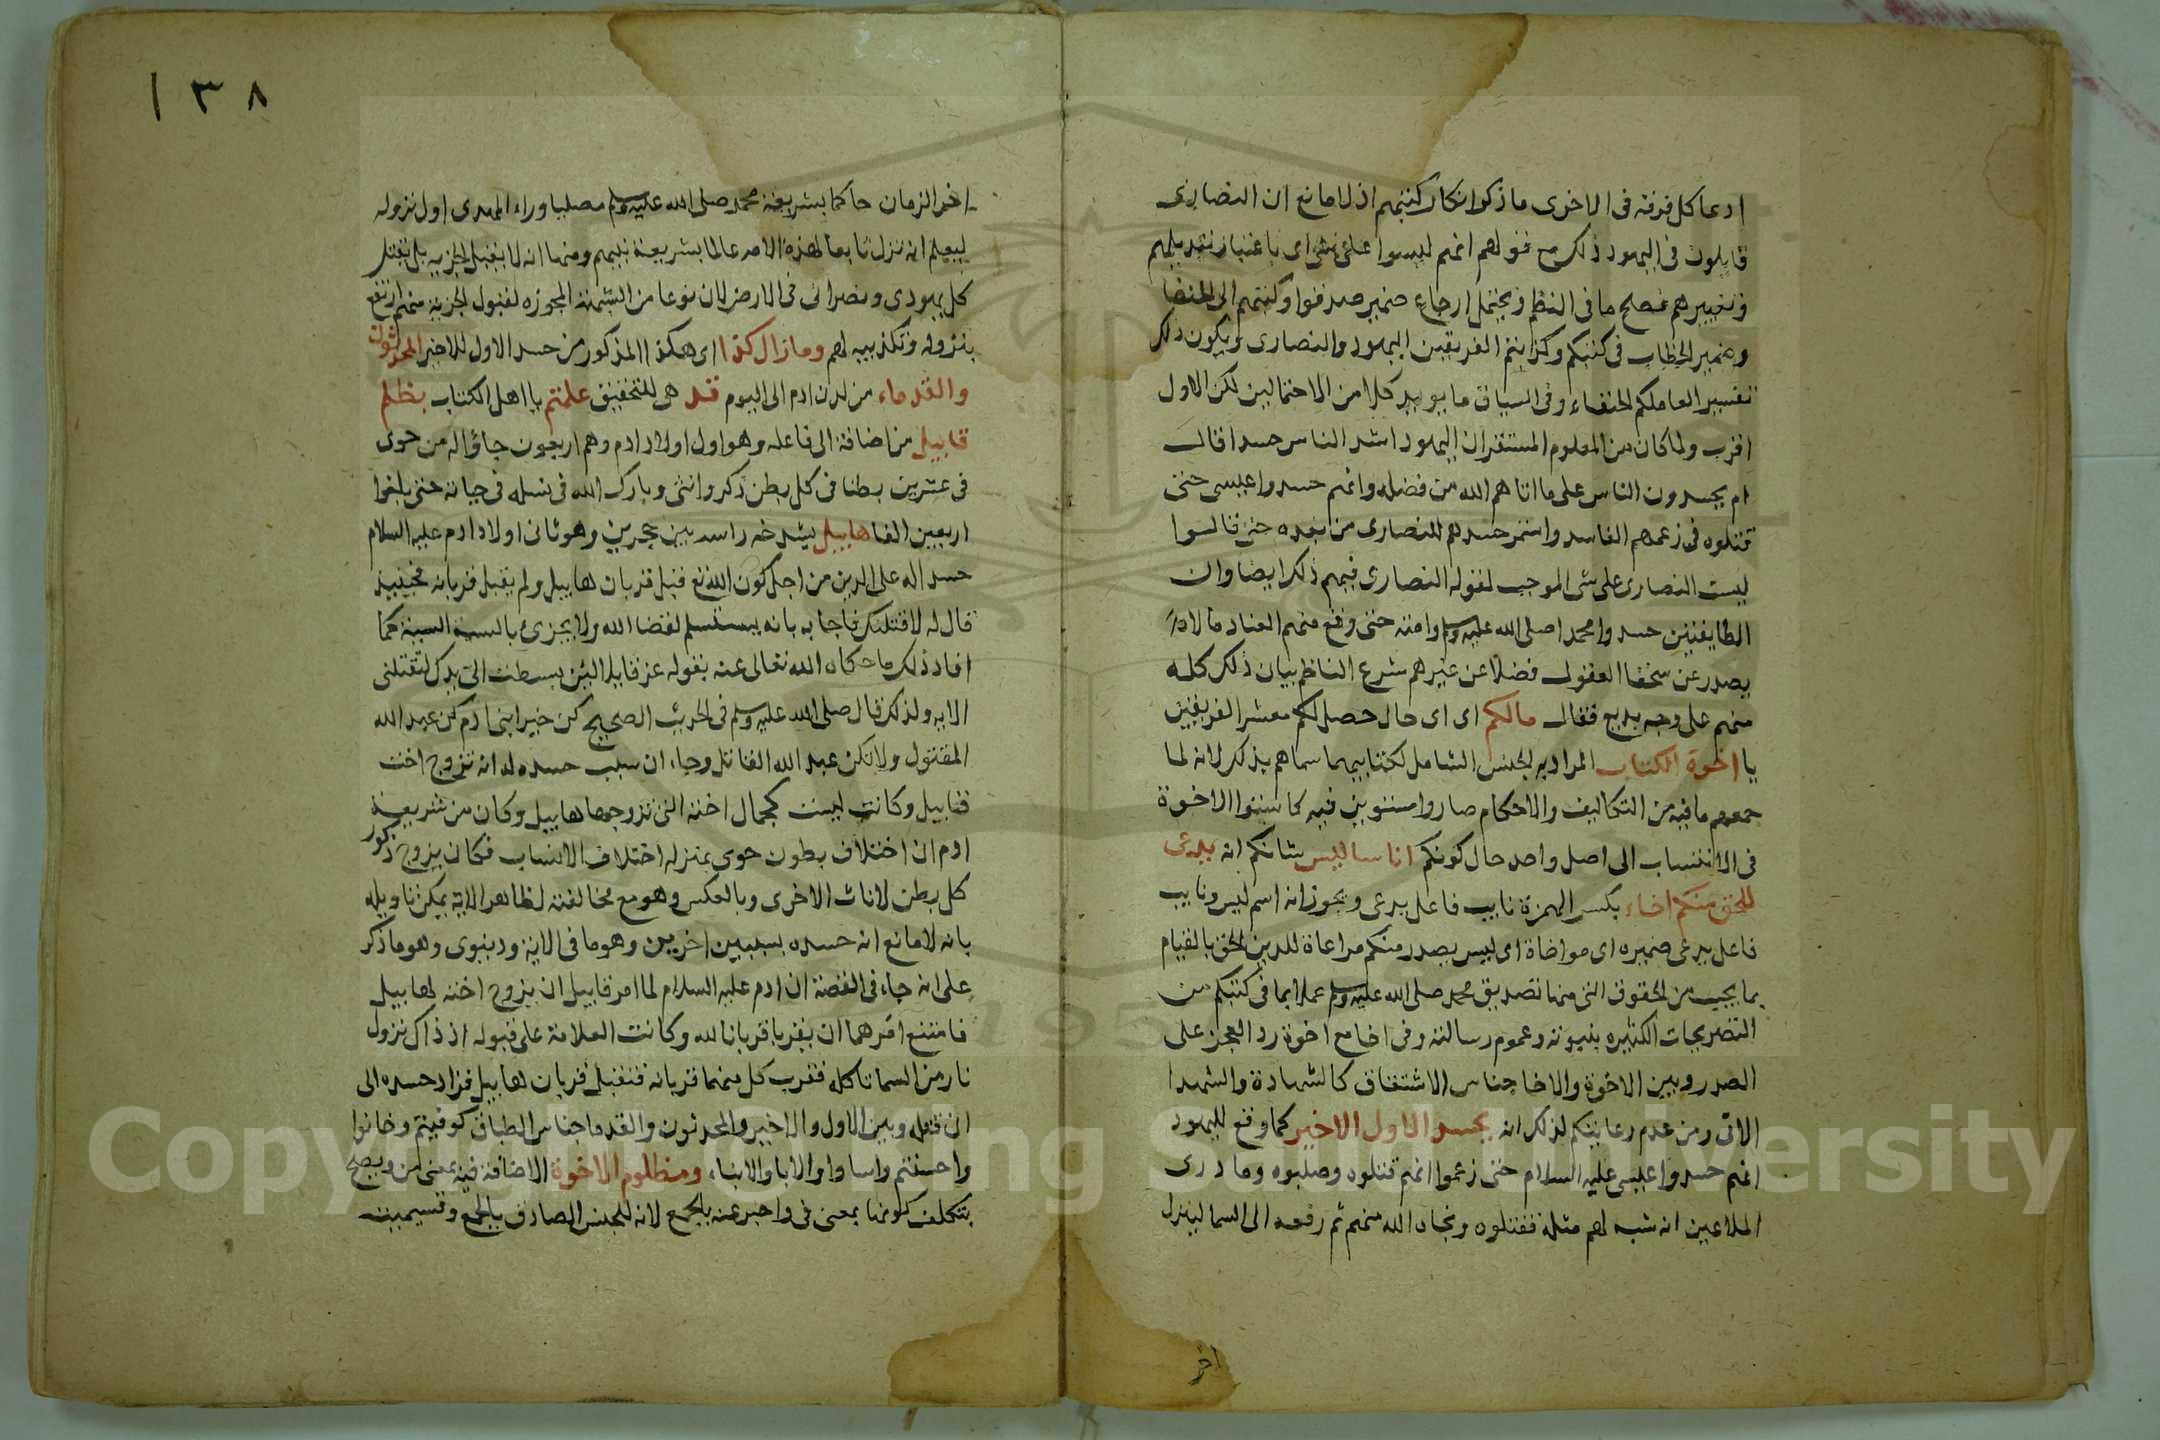 ادعا كل فرقة فى الاخرى ما ذكر وانكار كتبهم اذ لا مانع ان النصارى
قايلون فى اليهود ذلك مع قولهم انهم ليسوا على شى اى باعتبار تبديلهم
وتغييرهم فصلح ما فى النظم ويحتمل ارجاع ضمير صدقوا وكتبهم الى الحنفا
وضمير الخطاب فى كتبكم وكذبتم الفريقين اليهود والنصارى ويكون ذلك
تفسير العاملكم الحنفاء وفى السياق ما يويد كلا من الاحتمالين لكن الاول
اقرب ولما كان من المعلوم المستقر ان اليهود اشد الناس حسدا قال
ام يحسدون الناس على ما اتاهم الله من فضله وانهم حسدوا عيسى حتى
قتلوه فى زعمهم الفاسد واستمر حسدهم للنصارى من بعده حتى قالوا
ليست النصارى على شى الموجب لقوله النصارى فيهم ذلك ايضا وان
الطايفتين حسدوا محمدا صلى الله عليه وسلم وامته حتى وقع منهم العناد ما لا
يصدر عن سخفا العقول فضلا عن غيرهم شرع الناظم بيان ذلك كله
منهم على وجه بديع فقال مالكم اى اى حال حصل لكم معشر الفريقين
يا اخوة الكتاب المراد به الجنس الشامل لكتابيهما سماهم بذلك لانه لما
جمعهم ما فيه من التكاليف والاحكام صاروا مستوين فيه كاستوا الاخوة
فى الانتساب الى اصل واحد حال كونكم اناسا ليس شانكم انه يدعى
للحق منكم اخاء بكسر الهمزة نايب فاعل يرعى ويجوز انه اسم ليس ونايب
فاعل يرعى ضميره اى مواخاة اى ليس يصدر منكم مراعاة للدين الحق بالقيام
بما يجب من الحقوق التى منها تصديق محمد صلى الله عليه وسلم عملا بما فى كتبكم من
التصريحات الكثيرة بنبوته وعموم رسالته وفى اخا مع اخوة رد العجز على
الصدر وبين الاخوة والاخا جناس الاشتقاق كالشهادة والشهدا
الاتى ومن عدم رعايتكم لذلك انه يحسد الاول الاخير كما وقع لليهود
انهم حسدوا عيسى عليه السلام حتى زعموا انهم قتلوه وصلبوه وما درى
الملاعين انه شبه لهم مثله فقتلوه ونجاه الله منهم ثم رفعه الى السما لينزل
اخر
١٣٨
اخر الزمان حاكما بشريعة محمد صلى الله عليه وسلم مصليا وراء المهدى اول نزوله
ليعلم انه نزل تابعا لهذه الامة عالما بشريعة نبيهم ومنها انه لا يقبل الجزيه بل يقتل
كل يهودى ونصرانى فى الارض لان نوعا من الشبهة المجوزه لقبول الجزية منهم ارتفع
بنزوله وتكذيبه لهم وما زال كذا اى هكذا المذكور من حسد الاول للاخير المحدثون
والقدماء من لدن ادم الى اليوم قد هى للتحقيق علمتم يا اهل الكتاب بظلم
قابيل من اضافة الى فاعله وهو اول اولاد ادم وهم اربعون جاؤا له من حوى
فى عشرين بطنا فى كل بطن ذكر وانثى وبارك الله فى نسله فى حياته حتى بلغوا
اربعين الفا هابيل بشدخه راسه بين حجرين وهو ثانى اولاد ادم عليه السلام
حسدا له على الدين من اجل كون الله تع قبل قربان هابيل ولم يقبل قربانه فحينيذ
قال له لاقتلنك فاجابه بانه يستسلم لقضا الله ولا يجزئ بالسية السية كما
افاد ذلك ما حكاه الله تعالى عنه بقوله عز قايلا لئن بسطت الى يدك لتقتلنى
الايه ولذلك قال صلى الله عليه وسلم فى الحديث الصحيح كن خير ابنى ادم كن عبد الله
المقتول ولا تكن عبد الله القاتل وجاء ان سبب حسده له انه تزوج اخت
قابيل وكانت ليست كجمال اخته التى تزوجها هابيل وكان من شريعة
ادم ان اختلاف بطون حوى بمنزله اختلاف الانساب فكان يزوج ذكور
كل بطن لاناث الاخرى وبالعكس وهو مع مخالفته لظاهر الاية يمكن تاويله
بانه لا مانع انه حسده بسببين اخريين وهو ما فى الاية ودنيوى وهو ما ذكر
على انه جاء فى القصة ان ادم عليه السلام لما امر قابيل ان يزوج اخته لهابيل
فامتنع امرهما ان يقربا قربانا لله وكانت العلامة على قبوله اذ ذاك نزول
نار من السما تاكله فقرب كل منهما قربانه فتقبل قربان هابيل فزاد حسده الى
ان قتله وبين الاول والاخير والمحدثون والقدما جناس الطباق كوفيتم وخانوا
واحسنتم واساوا والابا والابناء ومظلوم الاخوة الاضافة فيه بمعنى من ويصح
بتكلف كونها بمعنى فى واخبر عنه بالجمع لانه للجنس الصادق بالجمع وقسيمين
Copyright © King Saud University